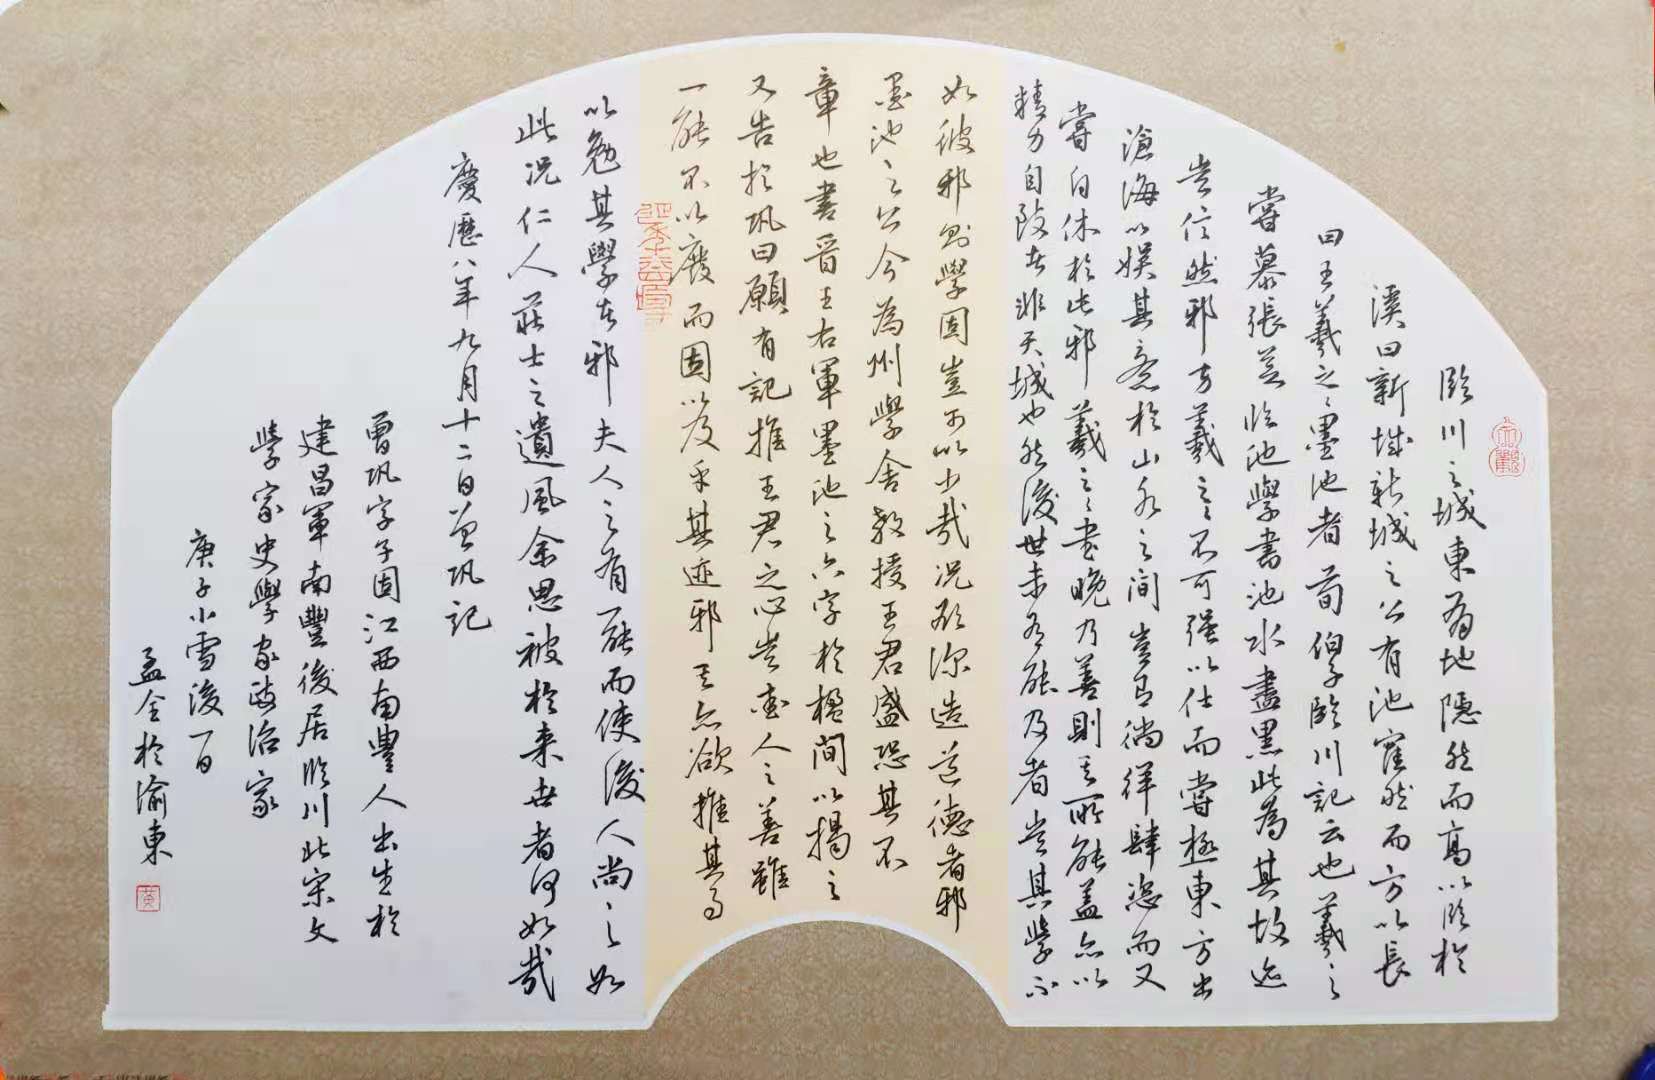 臨川之城東有地隱然而高以臨於
溪曰新城新城之上有池窪然而方以長
曰王羲之之墨池者荀伯子臨川記云也羲之
嘗慕張芝臨池學書池水盡黑此為其故迹
豈信然邪方羲之之不可強以仕而嘗極東方出
滄海以娛其意於山水之間豈有徜徉肆恣而又
嘗自休於此邪羲之之書晚乃善則其所能蓋亦以
精力自致者非天城也然後世未有能及者豈其學不
如彼邪則學固豈可以少哉況欲深造道德者邪
墨池之上今為州學舍教授王君盛恐其不
章也書晉王右軍墨池之六字於楹間以揭之
又告於巩曰願有記推王君之心豈愛人之善雖
一能不以廢而因以及乎其迹邪其亦欲推其事
以勉其學者邪夫人之有一能而使後人尚之如
此況仁人莊士之遺風余思被於來世者何如哉
慶歷八年九月十二日曾巩記
曾巩字子固江西南豐人出生於
建昌軍南豐後居臨川北宋文
學家史學家政治家
庚子小雪後一日
孟全於渝東